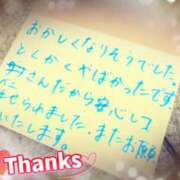 おかしくなりそうでした。
とにかくやばかったです
さんだから安心して
せられました。またお願
いたします。
Thanks